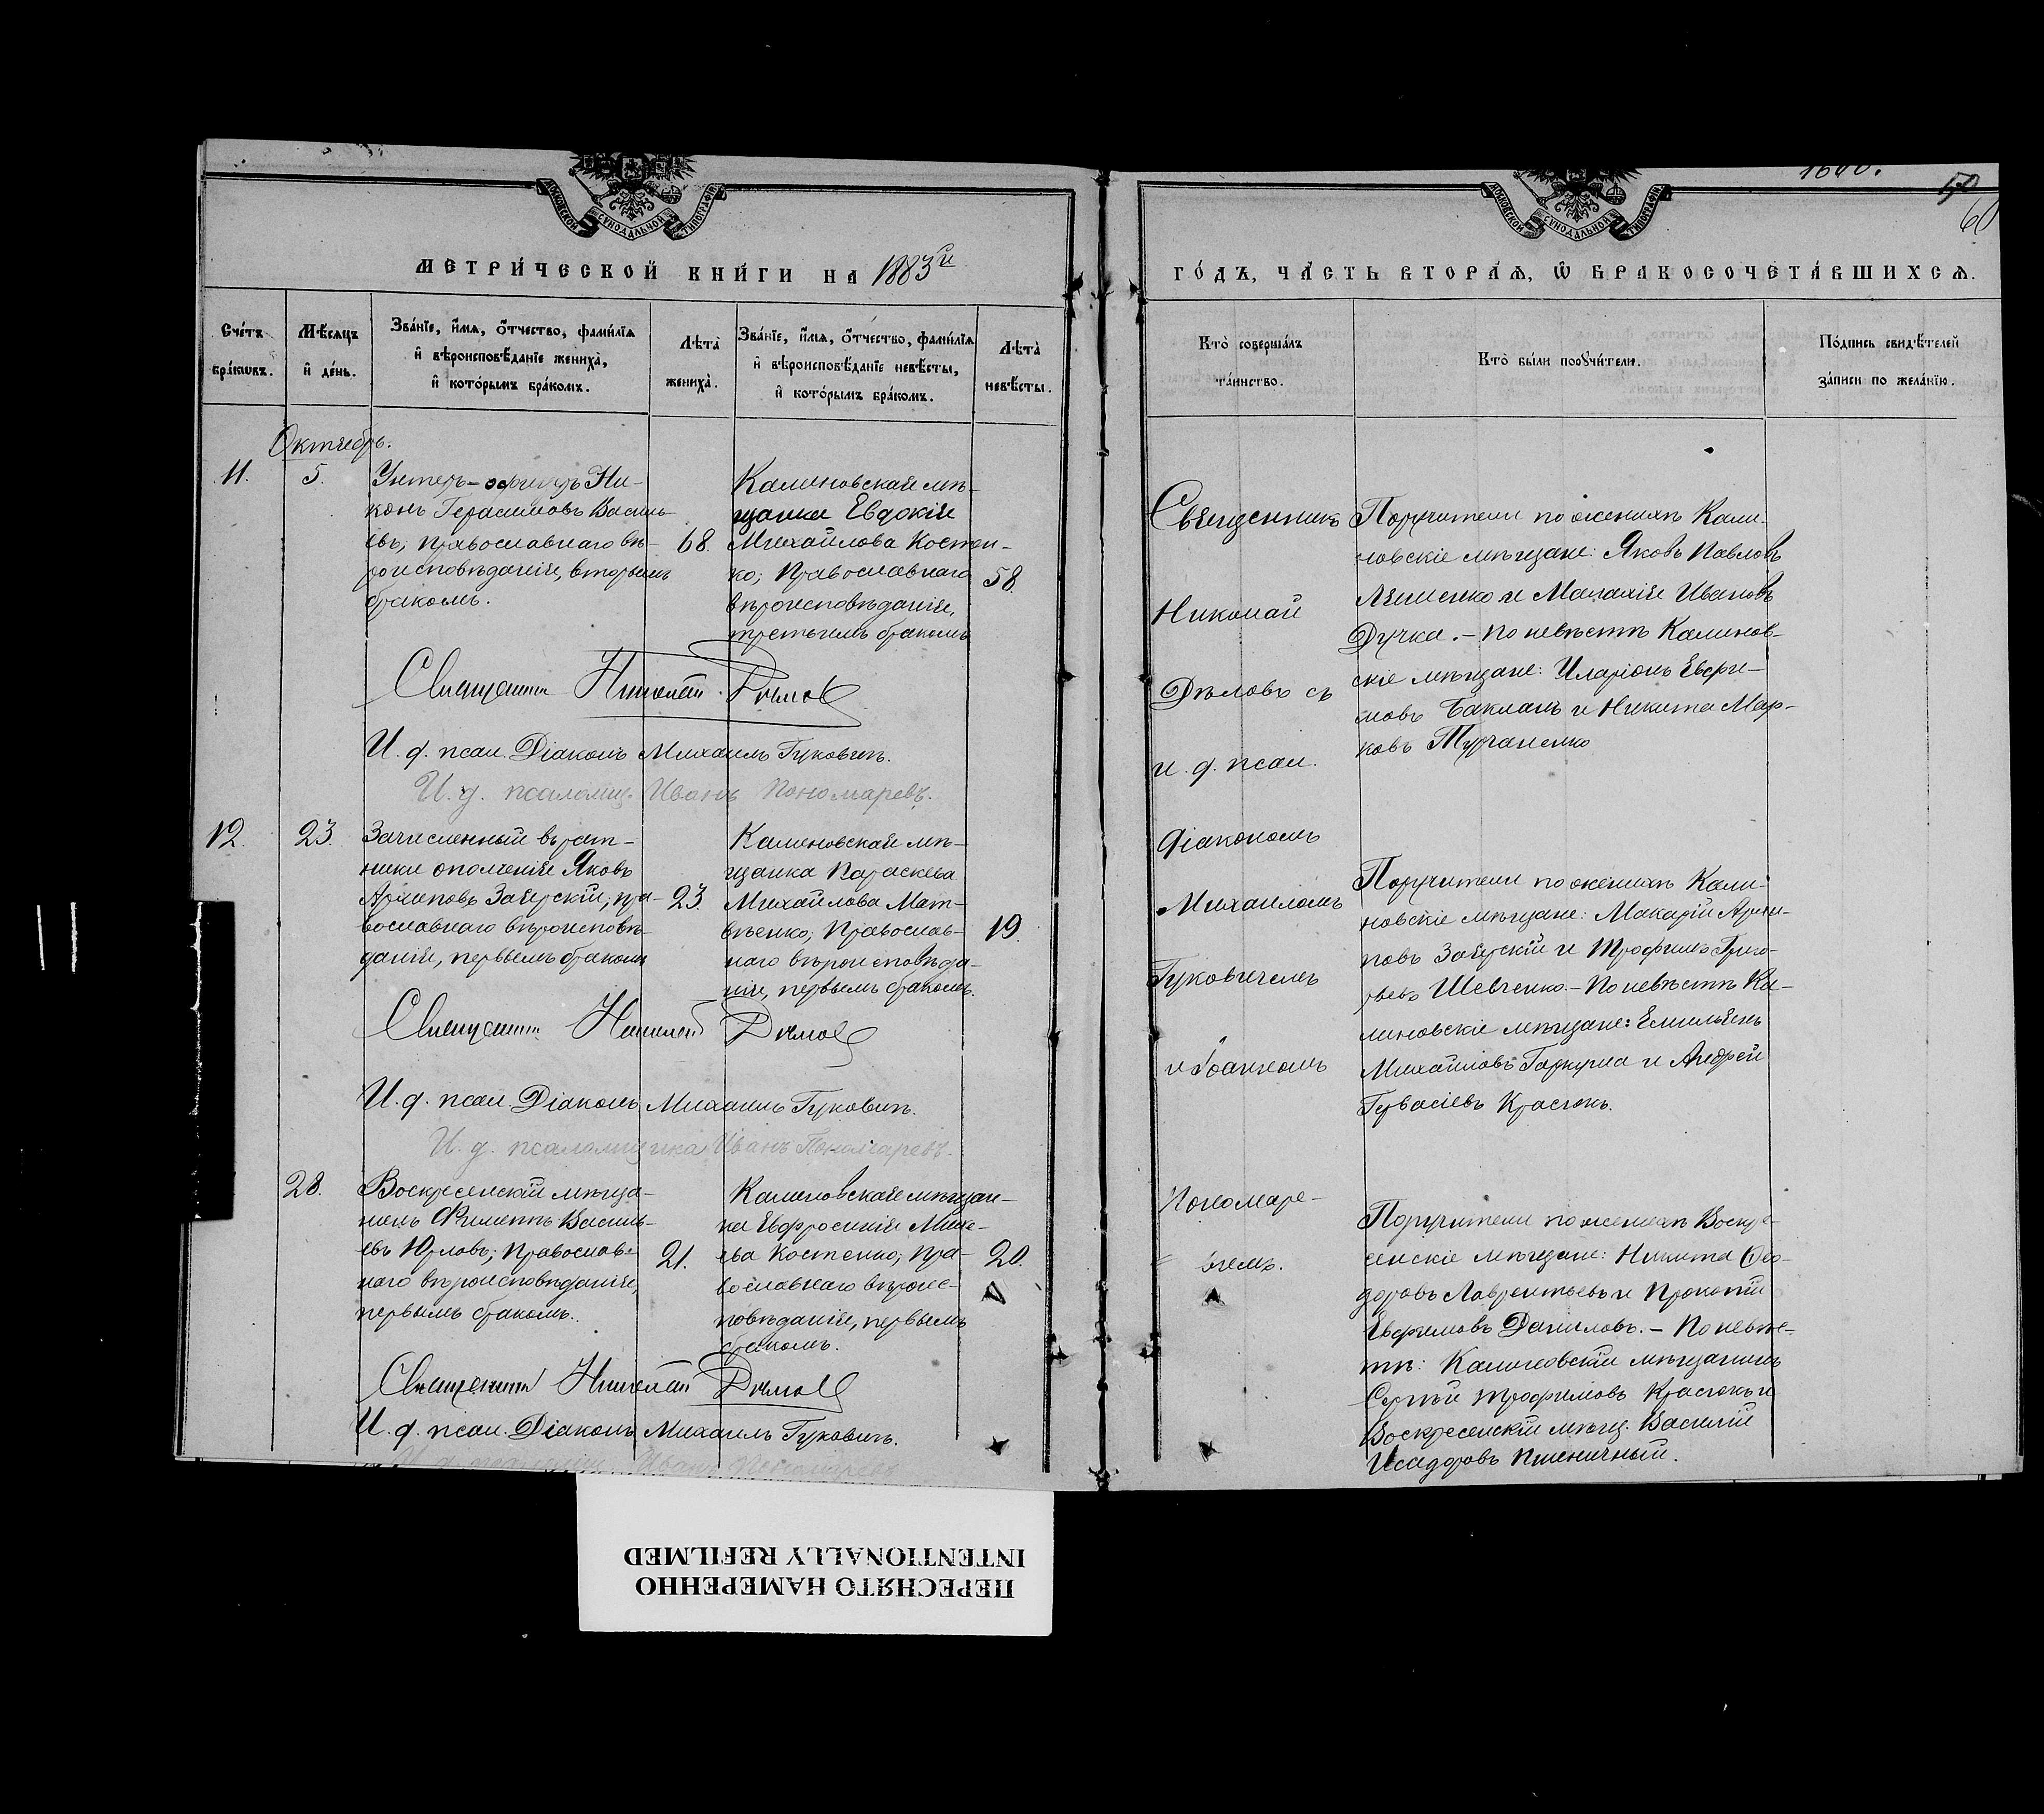 МОСКОВСКОЙ СѴНОДАЛЬНОЙ ТИПОГРАФІИ
МЕТРИЧЕСКОЙ КНИГИ НА 1883й
Счетъ браковъ.
Мѣсяцъ и день.
Званіе, имя, отчество, фамилія
и вѣроисповѣданіе жениха,
и которымъ бракомъ.
Лѣта
жениха.
Званіе, имя, отчество, фамилія
и вѣроисповѣданіе невѣсты,
и которымъ бракомъ.
Лѣта
невѣсты.
Октябрь.
11.
5.
Унтеръ-офицеръ Ни-
конъ Герасимовъ Василь-
евъ, православнаго вѣ-
роисповѣданія, вторымъ
бракомъ.
68.
Калиновская мѣ-
щанка Евдокія
Михайлова Костен-
ко; Православнаго
вѣроисповѣданія,
третьимъ бракомъ
58.
Священникъ Николай Дѣловъ
И. д. псал. Діаконъ Михаилъ Гуковичъ.
И. д. псаломщ. Иванъ Пономаревъ.
12.
23.
Зачисленный въ рат-
ники ополченія Яковъ
Архиповъ Заберскій, пра-
вославнаго вѣроисповѣ-
данія, первымъ бракомъ
23.
Калиновская мѣ-
щанка Параскева
Михайлова Мат-
вѣенко; Православ-
наго вѣроисповѣда-
нія, первымъ бракомъ.
19.
Священникъ Николай Дѣловъ
И. д. псал. Діаконъ Михаилъ Гуковичъ.
И. д. псаломщика Иванъ Пономаревъ.
28.
Воскресенскій мѣща-
нинъ Филиппъ Василь-
евъ Юрловъ; Православ-
наго вѣроисповѣданія,
первымъ бракомъ.
21.
Калиновская мѣщан-
ка Евфросинія Мине-
ева Костенко; Пра-
вославнаго вѣроис-
повѣданія, первымъ
бракомъ.
20.
Священникъ Николай Дѣловъ
И. д. псал. Діаконъ Михаилъ Гуковичъ.
И. д. псаломщ. Иванъ Пономаревъ
МОСКОВСКОЙ СѴНОДАЛЬНОЙ ТИПОГРАФІИ
60
ГОДЪ, ЧАСТЬ ВТОРАЯ, Ѡ БРАКОСОЧЕТАВШИХСЯ.
Кто совершалъ
таинство.
Кто были поручители.
Подпись свидѣтелей
записи по желанію.
Священникъ
Николай
Дѣловъ съ
и. д. псал.
діакономъ
Михаиломъ
Гуковичемъ
и Іоанномъ
Пономаре-
вымъ.
Поручители по женихѣ Кали-
новскіе мѣщане: Яковъ Павловъ
Ляшенко и Малахія Ивановъ
Дучка. - По невѣстѣ Калинов-
скіе мѣщане: Иларіонъ Евфи-
мовъ Бакланъ и Никита Мар-
ковъ Турчаненко
Поручители по женихѣ Кали-
новскіе мѣщане: Макарій Архи-
повъ Заберскій и Трофимъ Григо-
рьевъ Шевченко. - По невѣстѣ Ка-
линовскіе мѣщане: Емильянъ
Михайловъ Гаркуша и Андрей
Гервасіевъ Краснокъ.
Поручители по женихѣ Воскре-
сенскіе мѣщане: Никита Ѳео-
доровъ Лаврентьевъ и Прокопій
Евфимовъ Даниловъ. - По невѣс-
тѣ: Калиновскій мѣщанинъ
Сергѣй Трофимовъ Краснокъ и
Воскресенскій мѣщ. Василій
Исидоровъ Пшеничный.
ПЕРЕСНЯТО НАМЕРЕННО
INTENTIONALLY REFILMED